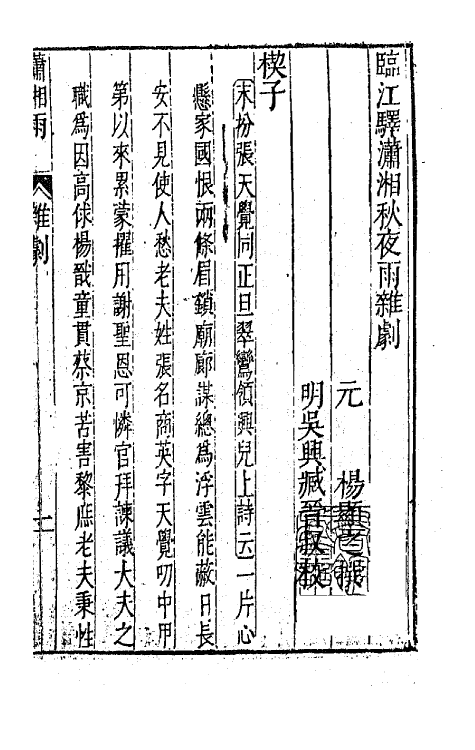 臨江驛瀟湘秋夜雨雜劇
元 楊顯之撰
明吳興臧晉叔校
楔子
末扮張天覺同正旦翠鸞領興兒上詩云一片心
懸家國恨兩條眉鎖廟廊謀總為浮雲能蔽日長
安不見使人愁老夫姓張名商英字天覺叨中甲
第以來累蒙擢用謝聖恩可憐官拜諫議大夫之
職為因高俅楊戩童貫蔡京苦害黎庶老夫秉性
瀟湘雨 雜劇 一